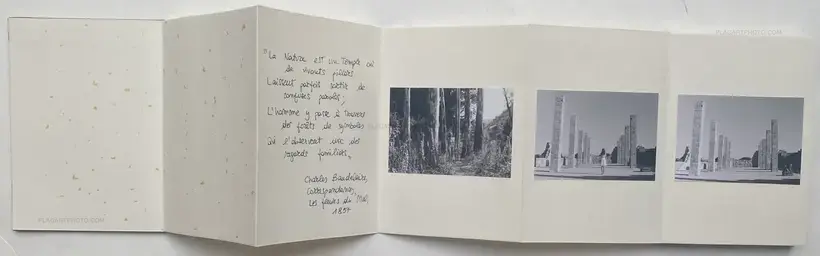 "La Nature est un temple où
de vivants piliers
Laissent parfois sortir de
confuses paroles;
L'homme y passe à travers
des forêts de symboles
Qui l'observent avec des
regards familiers"
Charles Baudelaire,
Correspondances,
Les fleurs du Mal,
1857
PLAGIATPHOTO.COM